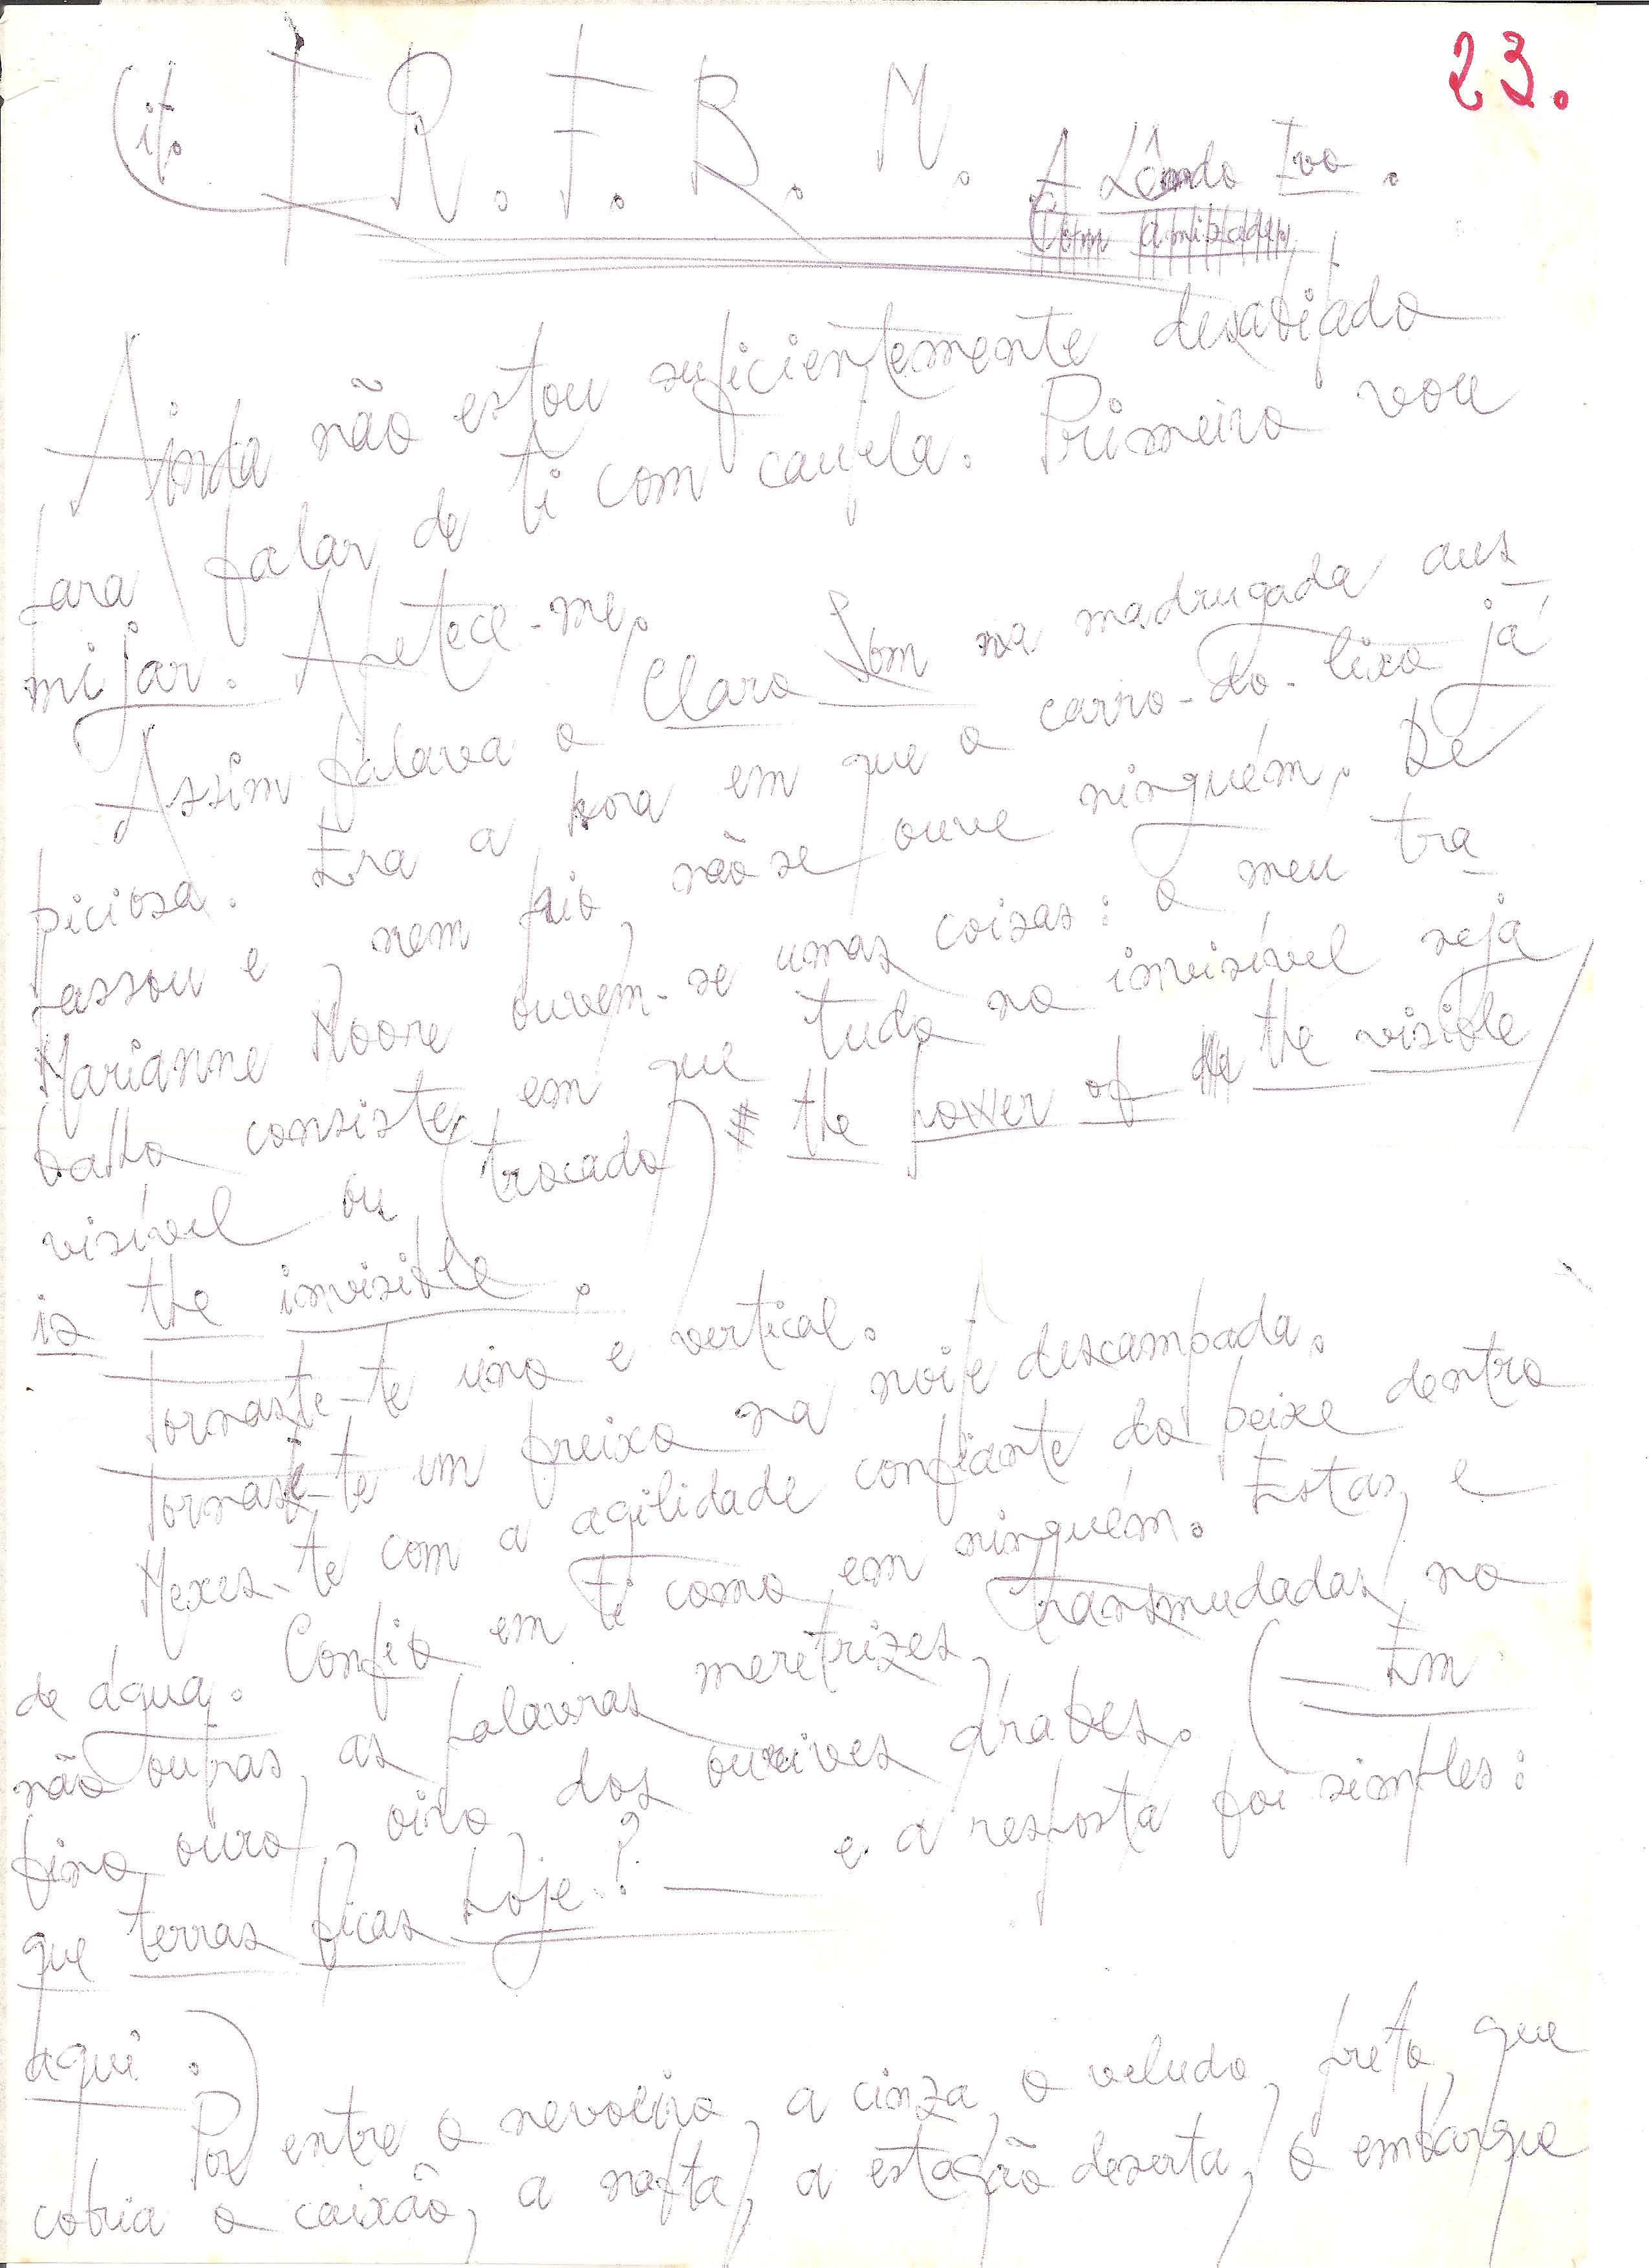 23.
(it. I R. I. B. M.
A Lêndo Ivo.
Com amizade,
Ainda não estou suficientemente desabifado
para falar de ti com cautela. Primeiro vou
mijar. Apetece-me.
Assim falava o Claro Som na madrugada aus
piciosa. Era a hora em que o carro-do-lixo já
passou e, nem pio, não se ouve ninguém. De
Marianne Moore ouvem-se umas coisas: o meu tra
balho consiste em que tudo no invisível seja
visível ou (trocado) the power of the visible
is the invisible.
Tornaste-te uno e vertical.
Tornaste-te um freixo na noite descampada.
Mexes-te com a agilidade confiante do peixe dentro
de água. Confia em ti como em ninguém. Estas, e
não outras, as palavras meretrizes, transmudadas no
fino ouro, oiro dos ourives árabes. (— Em
que terras ficas hoje? — e a resposta foi simples:
aqui.)
Por entre o nevoeiro, a cinza, o veludo preto, que
cobria o caixão, a nafta, a estação deserta, o embarque